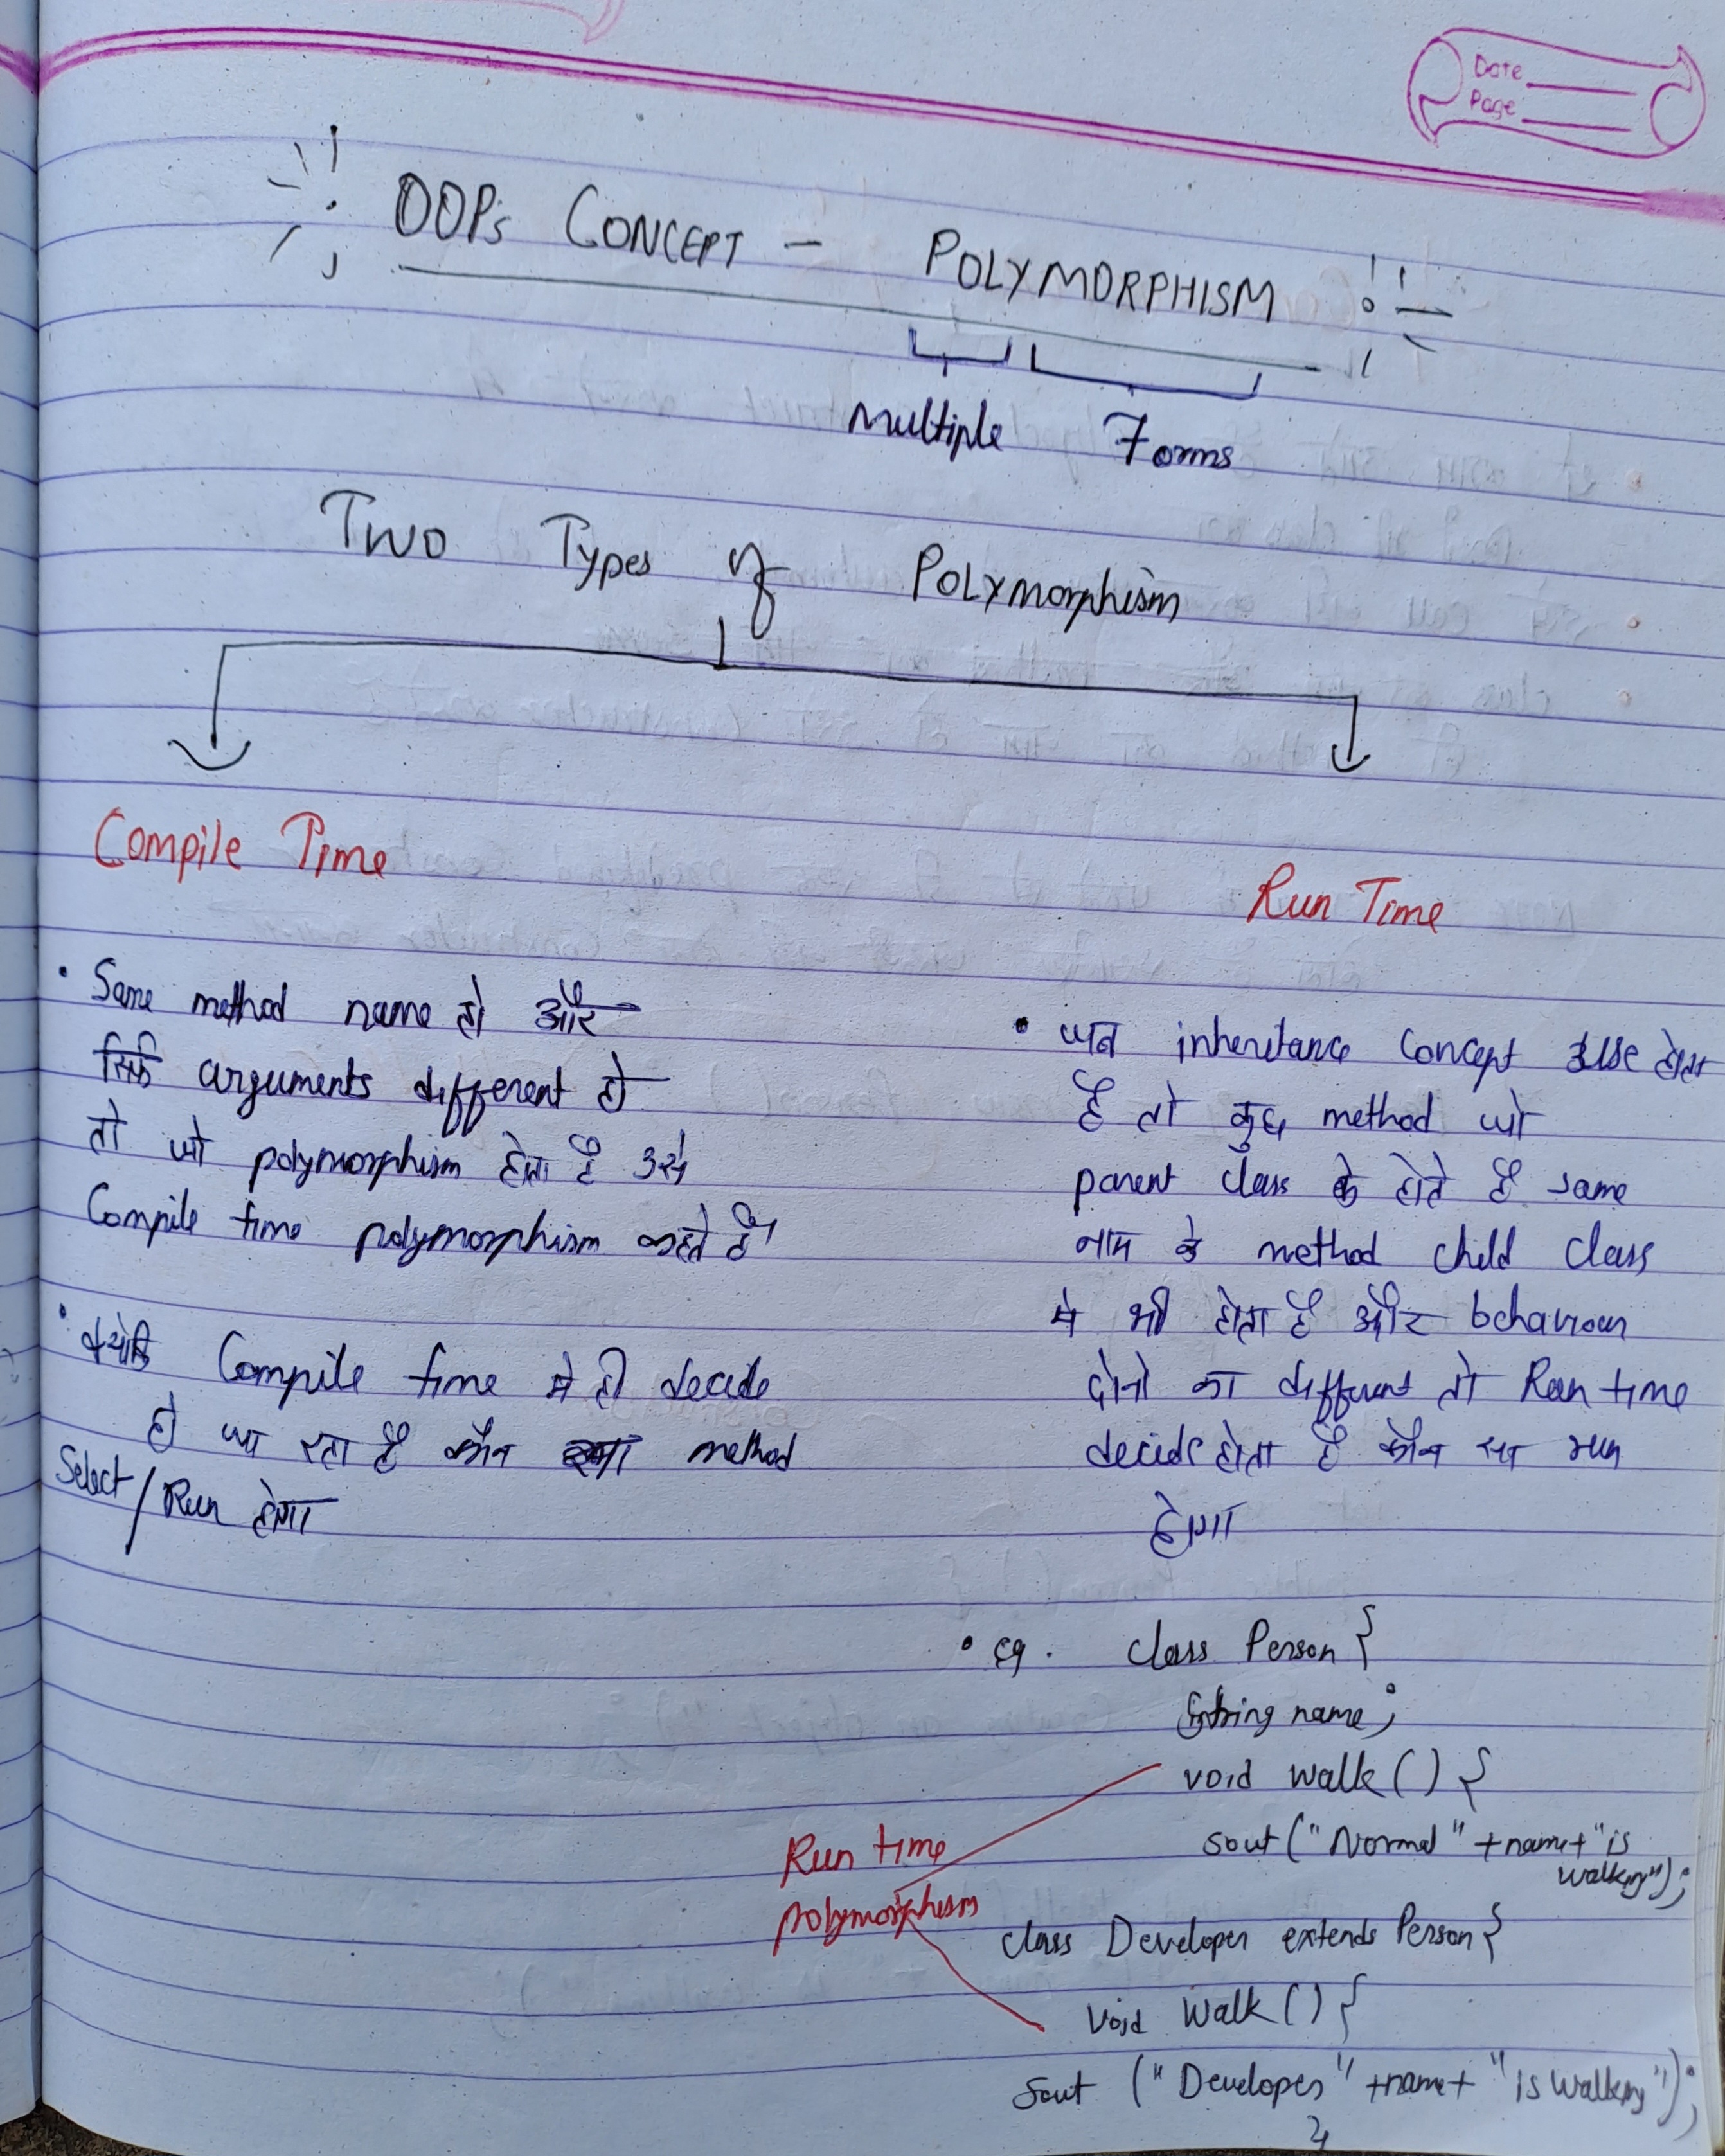 Date
Page
OOPs CONCEPT - POLYMORPHISM :
Multiple Forms
Two Types of Polymorphism
Compile Time
Run Time
• Same method name हो और
सिर्फ arguments different हो
तो जो polymorphism होता है उसे
Compile time polymorphism कहते है।
• क्योकि Compile time मे ही decide
हो जा रहा है कौन सा method
Select / Run होगा
• जब inheritance concept use होता
है तो कुछ method जो
parent class के होते है same
नाम के method child class
मे भी होता है और behaviour
दोनो का different तो Run time
decide होता है कौन सा run
होगा
• eg. class Person {
String name;
void walk () {
sout ("Normal" +name+ "is
walking");
Run time
polymorphism
class Developer extends Person {
void walk () {
sout ("Developer" +name+ "is walking");
}